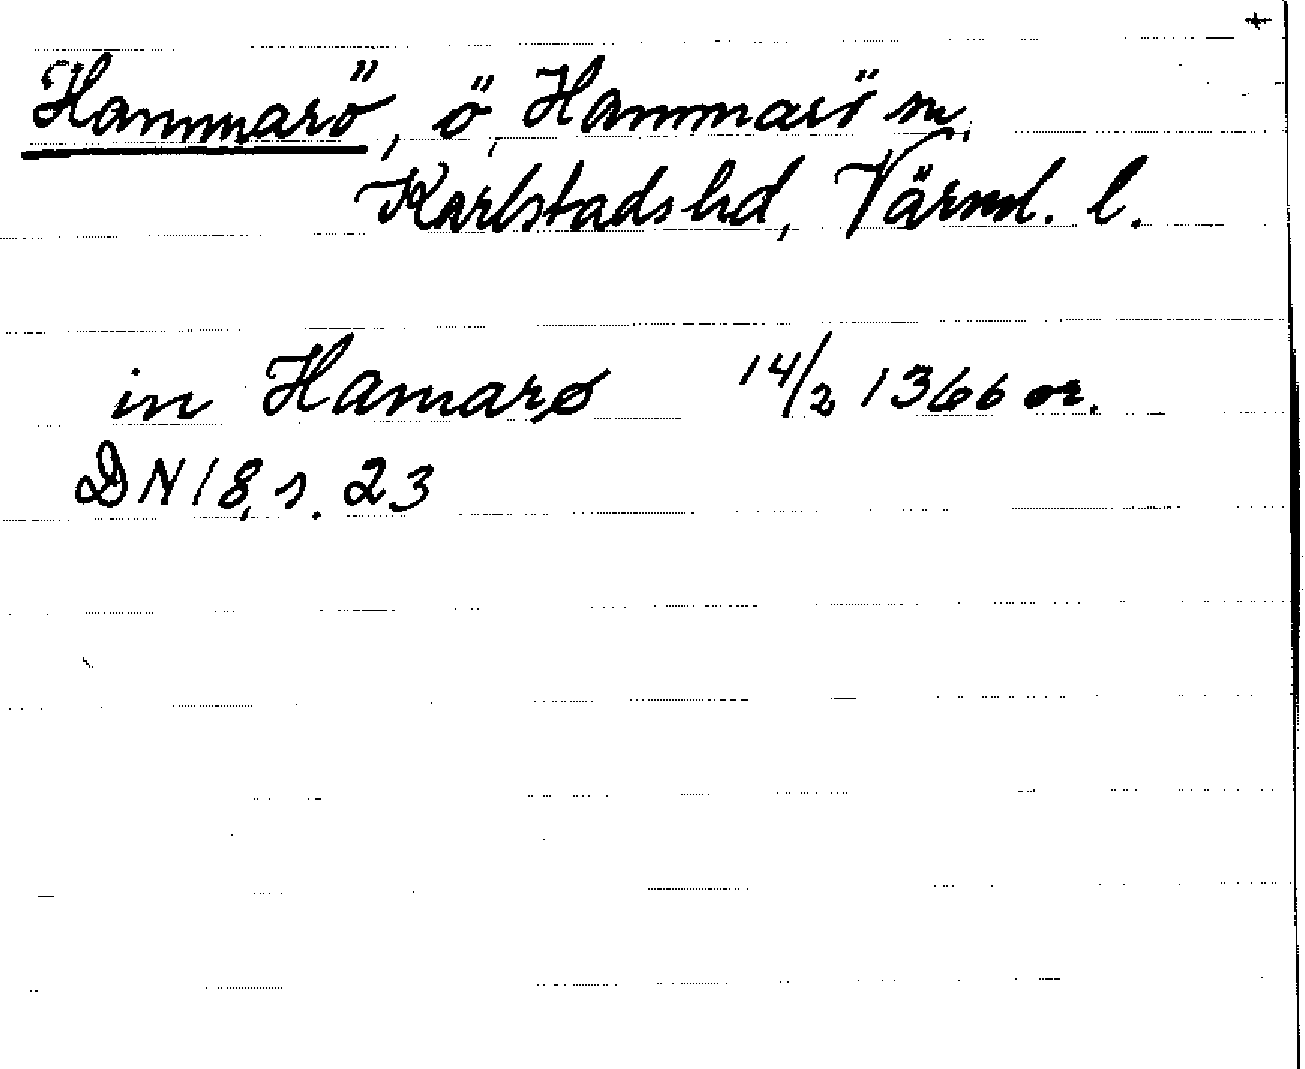 +
Hammarö, ö, Hammarö sn,
Karlstads hd, Värml. l.
in Hamarø 14/2 1366 or.
DN 18, s. 23